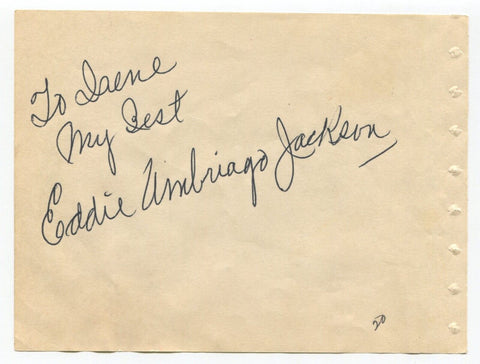 To Irene
My Best
Eddie Umbriago Jackson
20